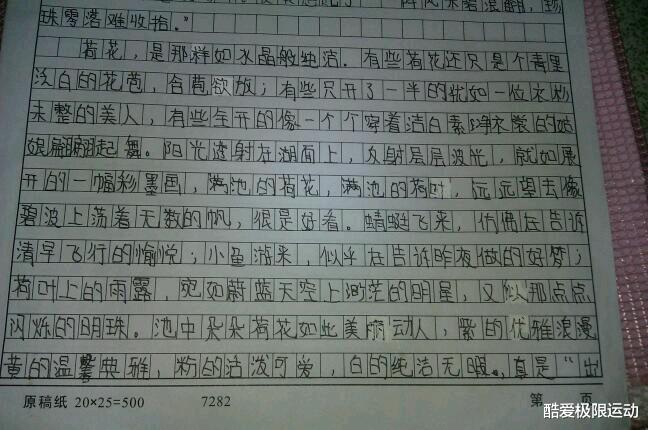 阵风来碧浪翻，珍
珠零落难收拾。”
荷花，是那样如水晶般纯洁。有些荷花还只是个青里
泛白的花苞，含苞欲放；有些只开了一半的犹如一位衣衫
未整的美人，有些全开的像一个个穿着洁白素净衣裳的姑
娘翩翩起舞。阳光透射在湖面上，反射层层波光，就如展
开的一幅彩墨画，满池的荷花，满池的荷叶，远远望去像
碧波上荡着无数的帆，很是好看。蜻蜓飞来，仿佛在告诉
清早飞行的愉悦；小鱼游来，似乎在告诉昨夜做的好梦；
荷叶上的雨露，宛如蔚蓝天空上渺茫的明星，又似那点点
闪烁的明珠。池中朵朵荷花如此美丽动人，紫的优雅浪漫
黄的温馨典雅，粉的活泼可爱，白的纯洁无暇。真是“出
原稿纸 20×25=500 7282 第 页
酷爱极限运动